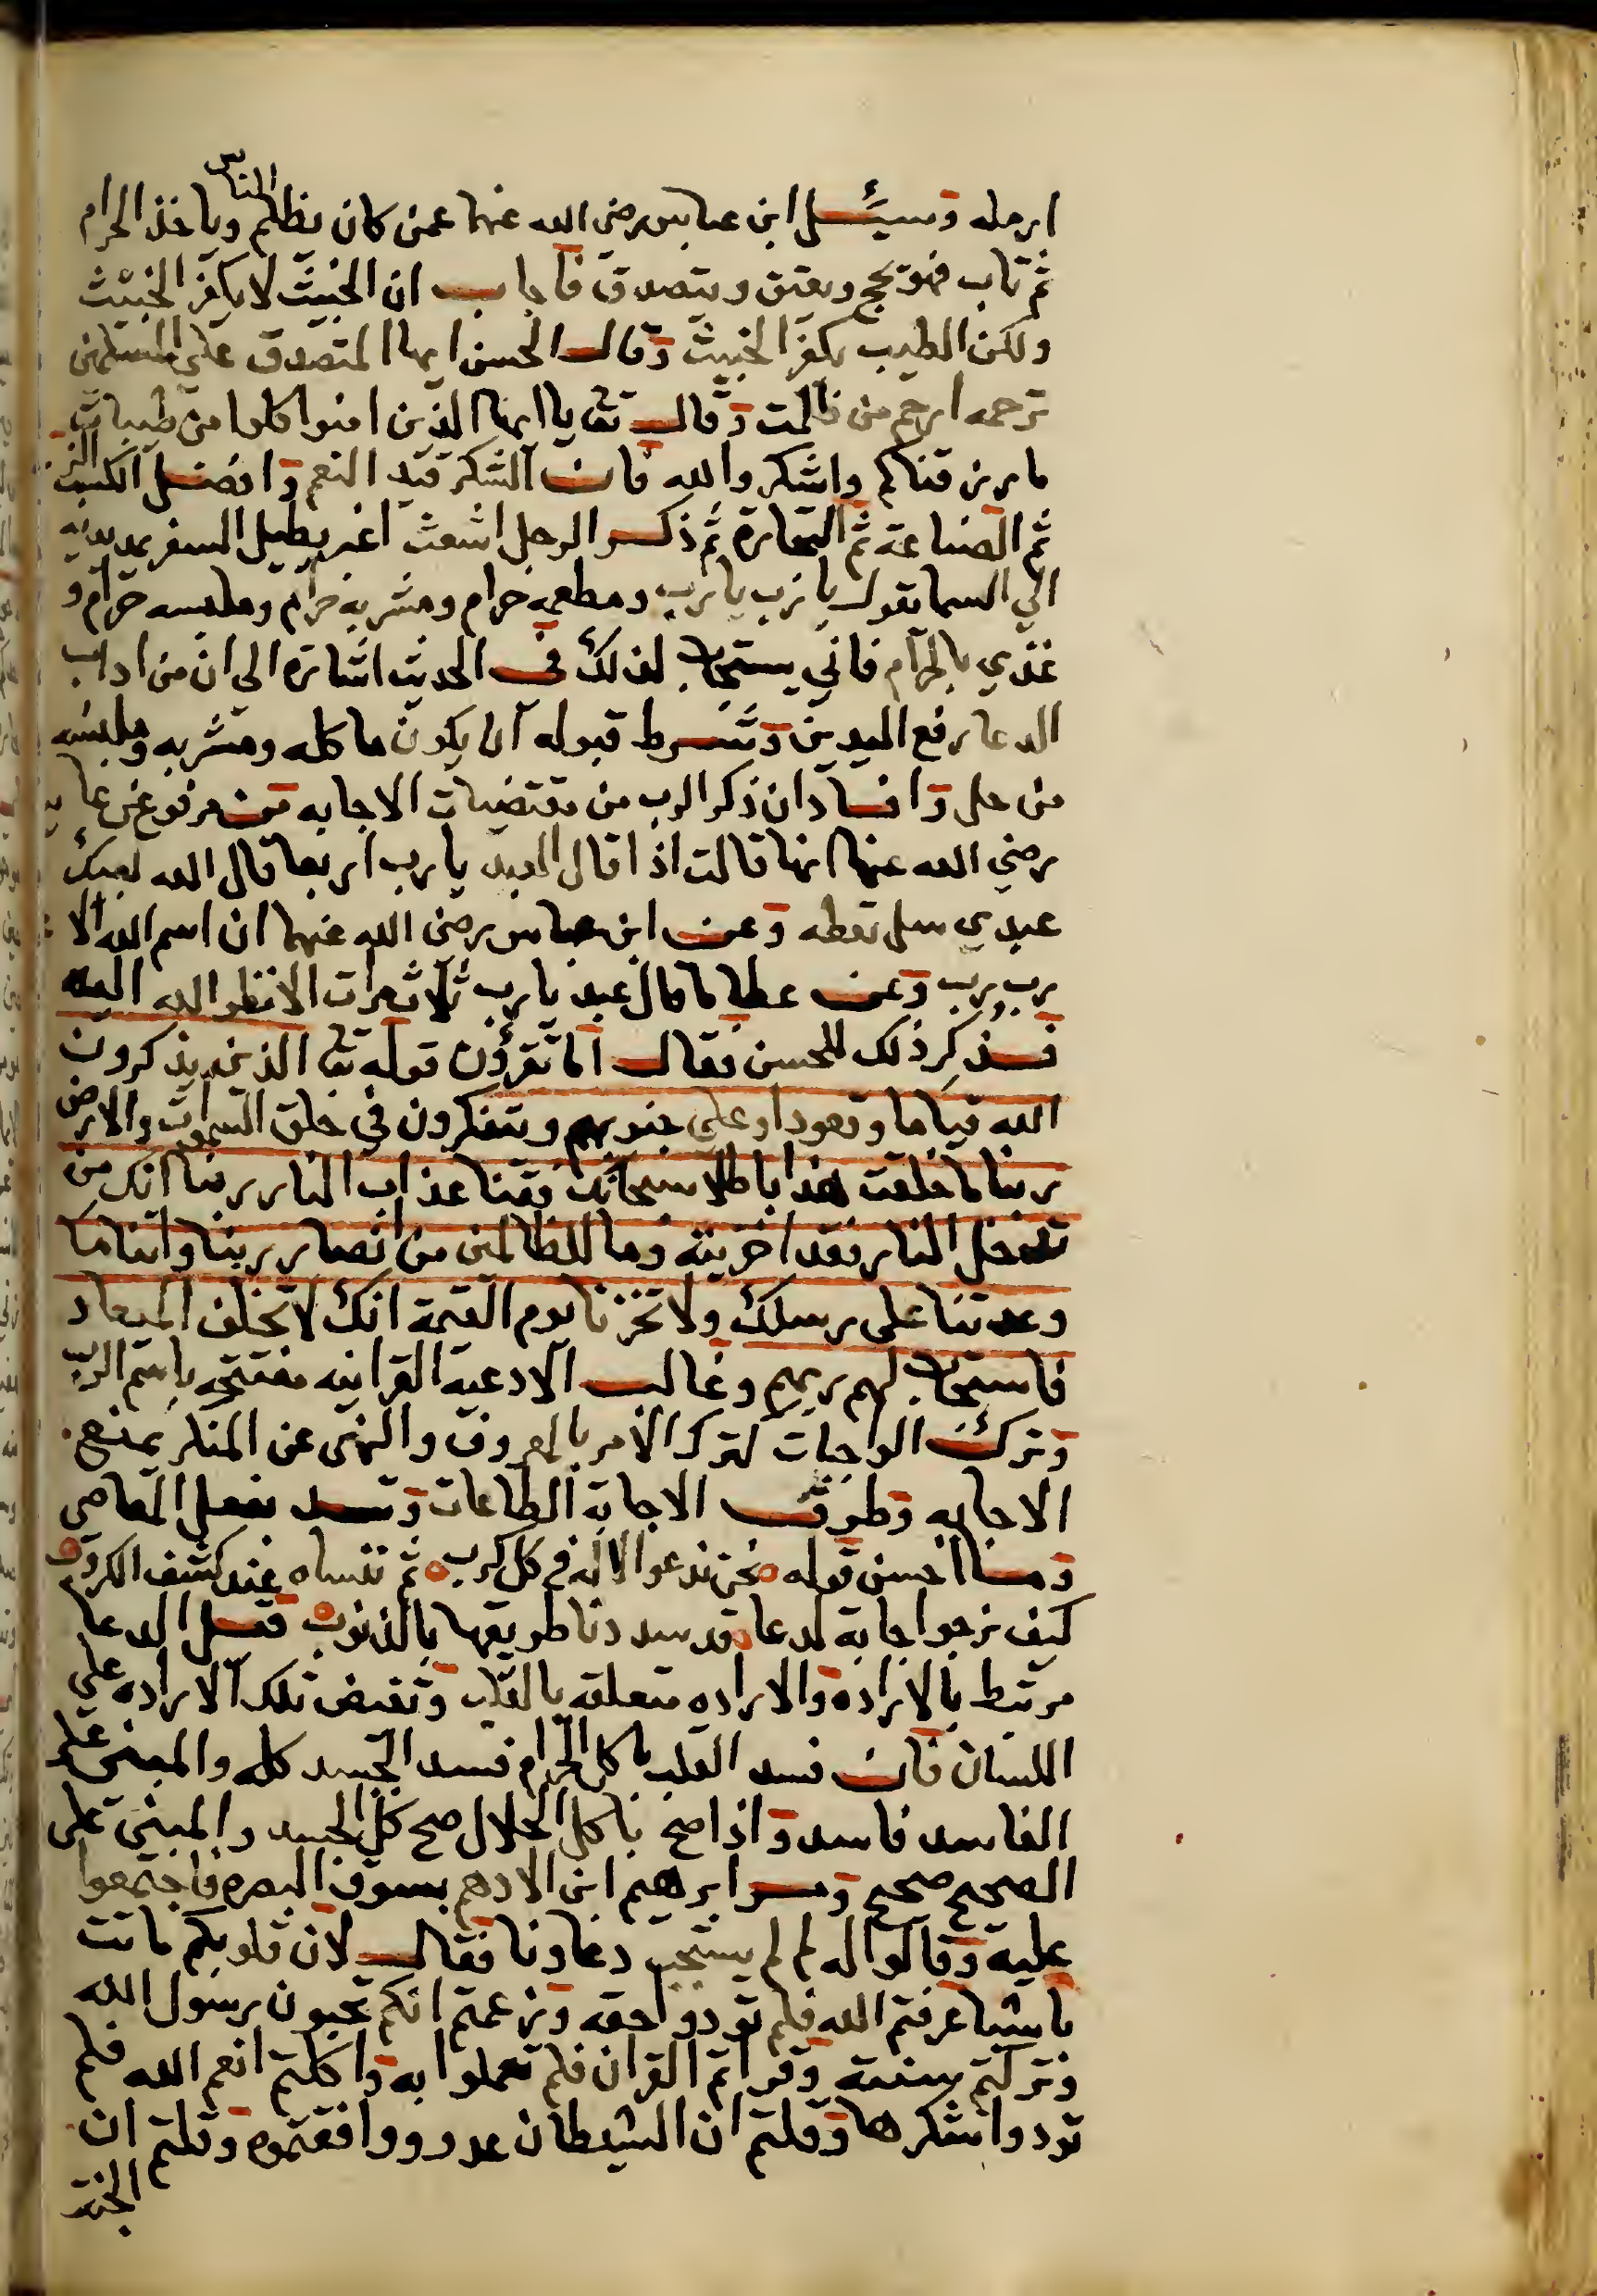 ارمله وسئل ابن عباس رضي الله عنهما عمن كان يظلم الناس وياخذ الحرام
ثم تاب فهو يحج ويعتق ويتصدق فاجاب ان الخبيث لا يكفر الخبيث
ولكن الطيب يكفر الخبيث وقال الحسن ايها المتصدق على المسكين
ترحمه ارحم من ظلمت وقال تعا يا ايها الذين امنوا كلوا من طيبات
ما رزقناكم واشكروا لله فان الشكر قيد النعم وافضل الكسب الزر
ثم الصناعة ثم التجارة ثم ذكر الرجل اشعث اغبر يطيل السفر يمد يديه
الى السما يقول يا رب يا رب ومطعمه حرام ومشربه حرام وملبسه حرام و
غذي بالحرام فاني يستجاب لذلك في الحديث اشارة الى ان من اداب
الدعا رفع اليدين وشرط قبوله ان يكون ماكله ومشربه وملبسه
من حل وافاد ان ذكر الرب من مقتضيات الاجابه فمن مرفوع عن عا
رضي الله عنها انها قالت اذا قال العبد يا رب اربعا قال الله لبيك
عبدي سل تعطه وعن ابن عباس رضي الله عنهما ان اسم الله الا
رب رب وعن عطا ما قال عبد يا رب ثلاث مرات الا نظر الله اليه
فذكر ذلك للحسن فقال اما تقرؤن قوله تعا الذين يذكرون
الله قياما وقعودا وعلى جنوبهم ويتفكرون في خلق السموات والارض
ربنا ما خلقت هذا باطلا سبحانك فقنا عذاب النار ربنا انك من
تدخل النار فقد اخزيته وما للظالمين من انصار ربنا واتنا ما
وعدتنا على رسلك ولا تخزنا يوم القيمة انك لا تخلف الميعاد
فاستجاب لهم ربهم وغالب الادعية القرانيه مفتتحه باسم الرب
وترك الواجبات كترك الامر بالمعروف والنهى عن المنكر يمنع
الاجابه وطرق الاجابة الطاعات وتسد بفعل المعاصي
وما احسن قوله نحن ندعوا الاله في كل كرب ثم ننساه عند كشف الكروب
كيف نرجوا اجابة لدعا قد سددنا طريقها بالذنوب فعمل الدعا
مرتبط بالارادة والاراده متعلقه بالقلب وتفيض تلك الاراده على
اللسان فان فسد القلب باكل الحرام فسد الجسد كله والمبنى على
الفاسد فاسد واذا صح باكل الحلال صح كل الجسد والمبنى على
الصحيح صحيح ومر ابرهيم ابن الادهم بسوق البصره فاجتمعوا
عليه وقالوا له لم لم يستجب دعاونا فقال لان قلوبكم ماتت
باشيا عرفتم الله فلم تودوا حقه وزعمتم انكم تحبون رسول الله
وتركتم سنته وقراتم القران فلم تعملوا به واكلتم انعم الله فلم
تودوا شكرها وقلتم ان الشيطان عدو ووافقتموه وقلتم ان
الجنة